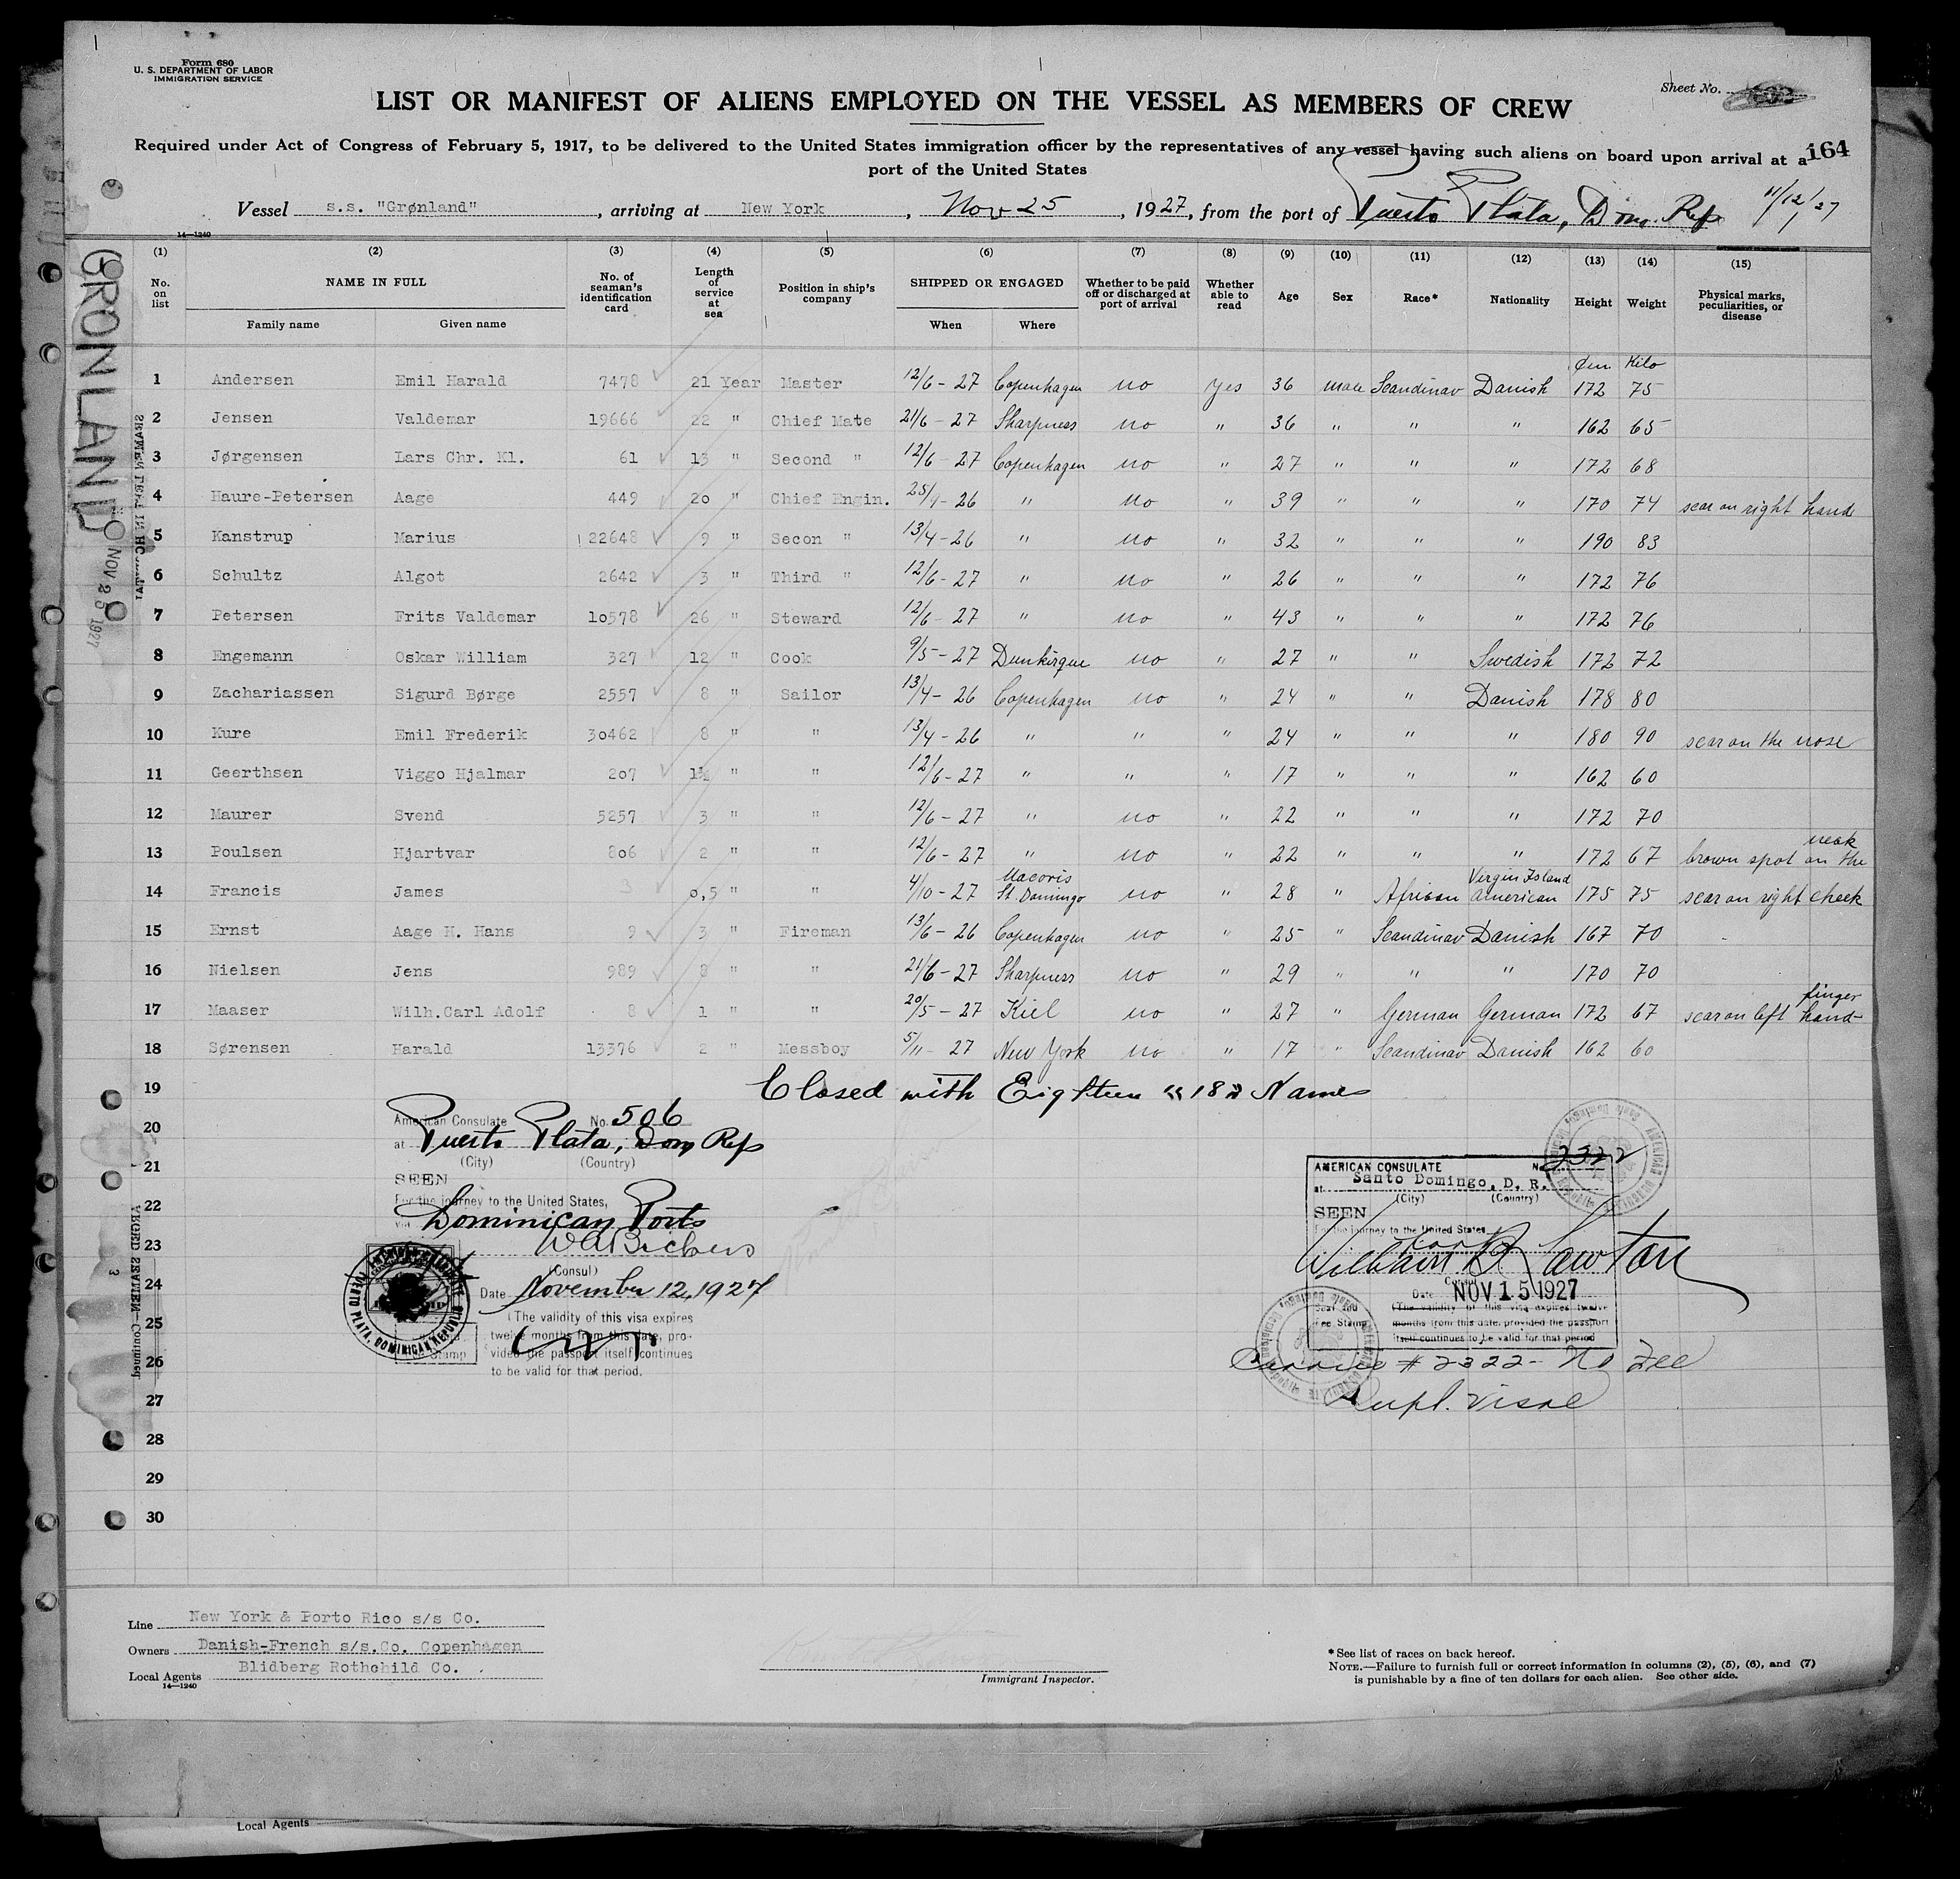 Form 680
U. S. DEPARTMENT OF LABOR
IMMIGRATION SERVICE
Sheet No.
LIST OR MANIFEST OF ALIENS EMPLOYED ON THE VESSEL AS MEMBERS OF CREW
Required under Act of Congress of February 5, 1917, to be delivered to the United States immigration officer by the representatives of any vessel having such aliens on board upon arrival at a
port of the United States
164
Vessel s.s. "Grønland", arriving at New York, Nov 25, 1927, from the port of Puerto Plata, Dom. Rep 11/12/27
14—1240
(1) (2) (3) (4) (5) (6) (7) (8) (9) (10) (11) (12) (13) (14) (15)
No. on list NAME IN FULL Family name Given name No. of seaman's identification card Length of service at sea Position in ship's company SHIPPED OR ENGAGED When Where Whether to be paid off or discharged at port of arrival Whether able to read Age Sex Race* Nationality Height Weight Physical marks, peculiarities, or disease
Kilo
1 Andersen Emil Harald 7478 21 Year Master 12/6-27 Copenhagen no yes 36 male Scandinav Danish 172 75
2 Jensen Valdemar 19666 22 " Chief Mate 21/6-27 Sharpness no " 36 " " " 162 65
3 Jørgensen Lars Chr. Kl. 61 13 " Second " 12/6-27 Copenhagen no " 27 " " " 172 68
4 Haure-Petersen Aage 449 20 " Chief Engin. 25/4-26 " no " 39 " " " 170 74 scar on right hand
5 Kanstrup Marius 22648 9 " Secon " 13/4-26 " no " 32 " " " 190 83
6 Schultz Algot 2642 3 " Third " 12/6-27 " no " 26 " " " 172 76
7 Petersen Frits Valdemar 10578 26 " Steward 12/6-27 " no " 43 " " " 172 76
8 Engemann Oskar William 327 12 " Cook 9/5-27 Dunkirque no " 27 " " Swedish 172 72
9 Zachariassen Sigurd Børge 2557 8 " Sailor 13/4-26 Copenhagen no " 24 " " Danish 178 80
10 Kure Emil Frederik 30462 8 " " 13/4-26 " " " 24 " " " 180 90 scar on the nose
11 Geerthsen Viggo Hjalmar 207 1½ " " 12/6-27 " " " 17 " " " 162 60
12 Maurer Svend 5257 3 " " 12/6-27 " no " 22 " " " 172 70
13 Poulsen Hjartvar 806 2 " " 12/6-27 " no " 22 " " " 172 67 brown spot on the neak
14 Francis James 3 0,5 " " 4/10-27 Macoris St. Domingo no " 28 " African Virgin Island American 175 75 scar on right cheek
15 Ernst Aage H. Hans 9 3 " Fireman 13/6-26 Copenhagen no " 25 " Scandinav Danish 167 70
16 Nielsen Jens 989 8 " " 21/6-27 Sharpness no " 29 " " " 170 70
17 Maaser Wilh.Carl Adolf 8 1 " " 20/5-27 Kiel no " 27 " German German 172 67 scar on left hand finger
18 Sørensen Harald 13376 2 " Messboy 5/11-27 New York no " 17 " Scandinav Danish 162 60
19 Closed with Eighteen "18" Names
20
21
22
23
24
25
26
27
28
29
30
GRONLAND
NOV 25 1927
American Consulate No. 506
at Puerto Plata, Dom Rep
(City) (Country)
SEEN
For the journey to the United States,
via Dominican Ports
(Consul)
Date November 12, 1927
(The validity of this visa expires
twelve months from this date, pro-
vided the passport itself continues
to be valid for that period.
PUERTO PLATA, DOMINICAN REPUBLIC
AMERICAN CONSULATE No. 2322
at Santo Domingo, D. R.
(City) (Country)
SEEN
For the journey to the United States
William B Lawton
Consul
Date NOV 15 1927
Seal and
Fee Stamp
(The validity of this visa expires twelve
months from this date, provided the passport
itself continues to be valid for that period
Service # 2322 - No Fee
Supl. Visae
Line New York & Porto Rico s/s Co.
Owners Danish-French s/s.Co. Copenhagen
Local Agents Blidberg Rothchild Co.
14—1240
Immigrant Inspector.
* See list of races on back hereof.
NOTE.—Failure to furnish full or correct information in columns (2), (5), (6), and (7)
is punishable by a fine of ten dollars for each alien. See other side.
Local Agents